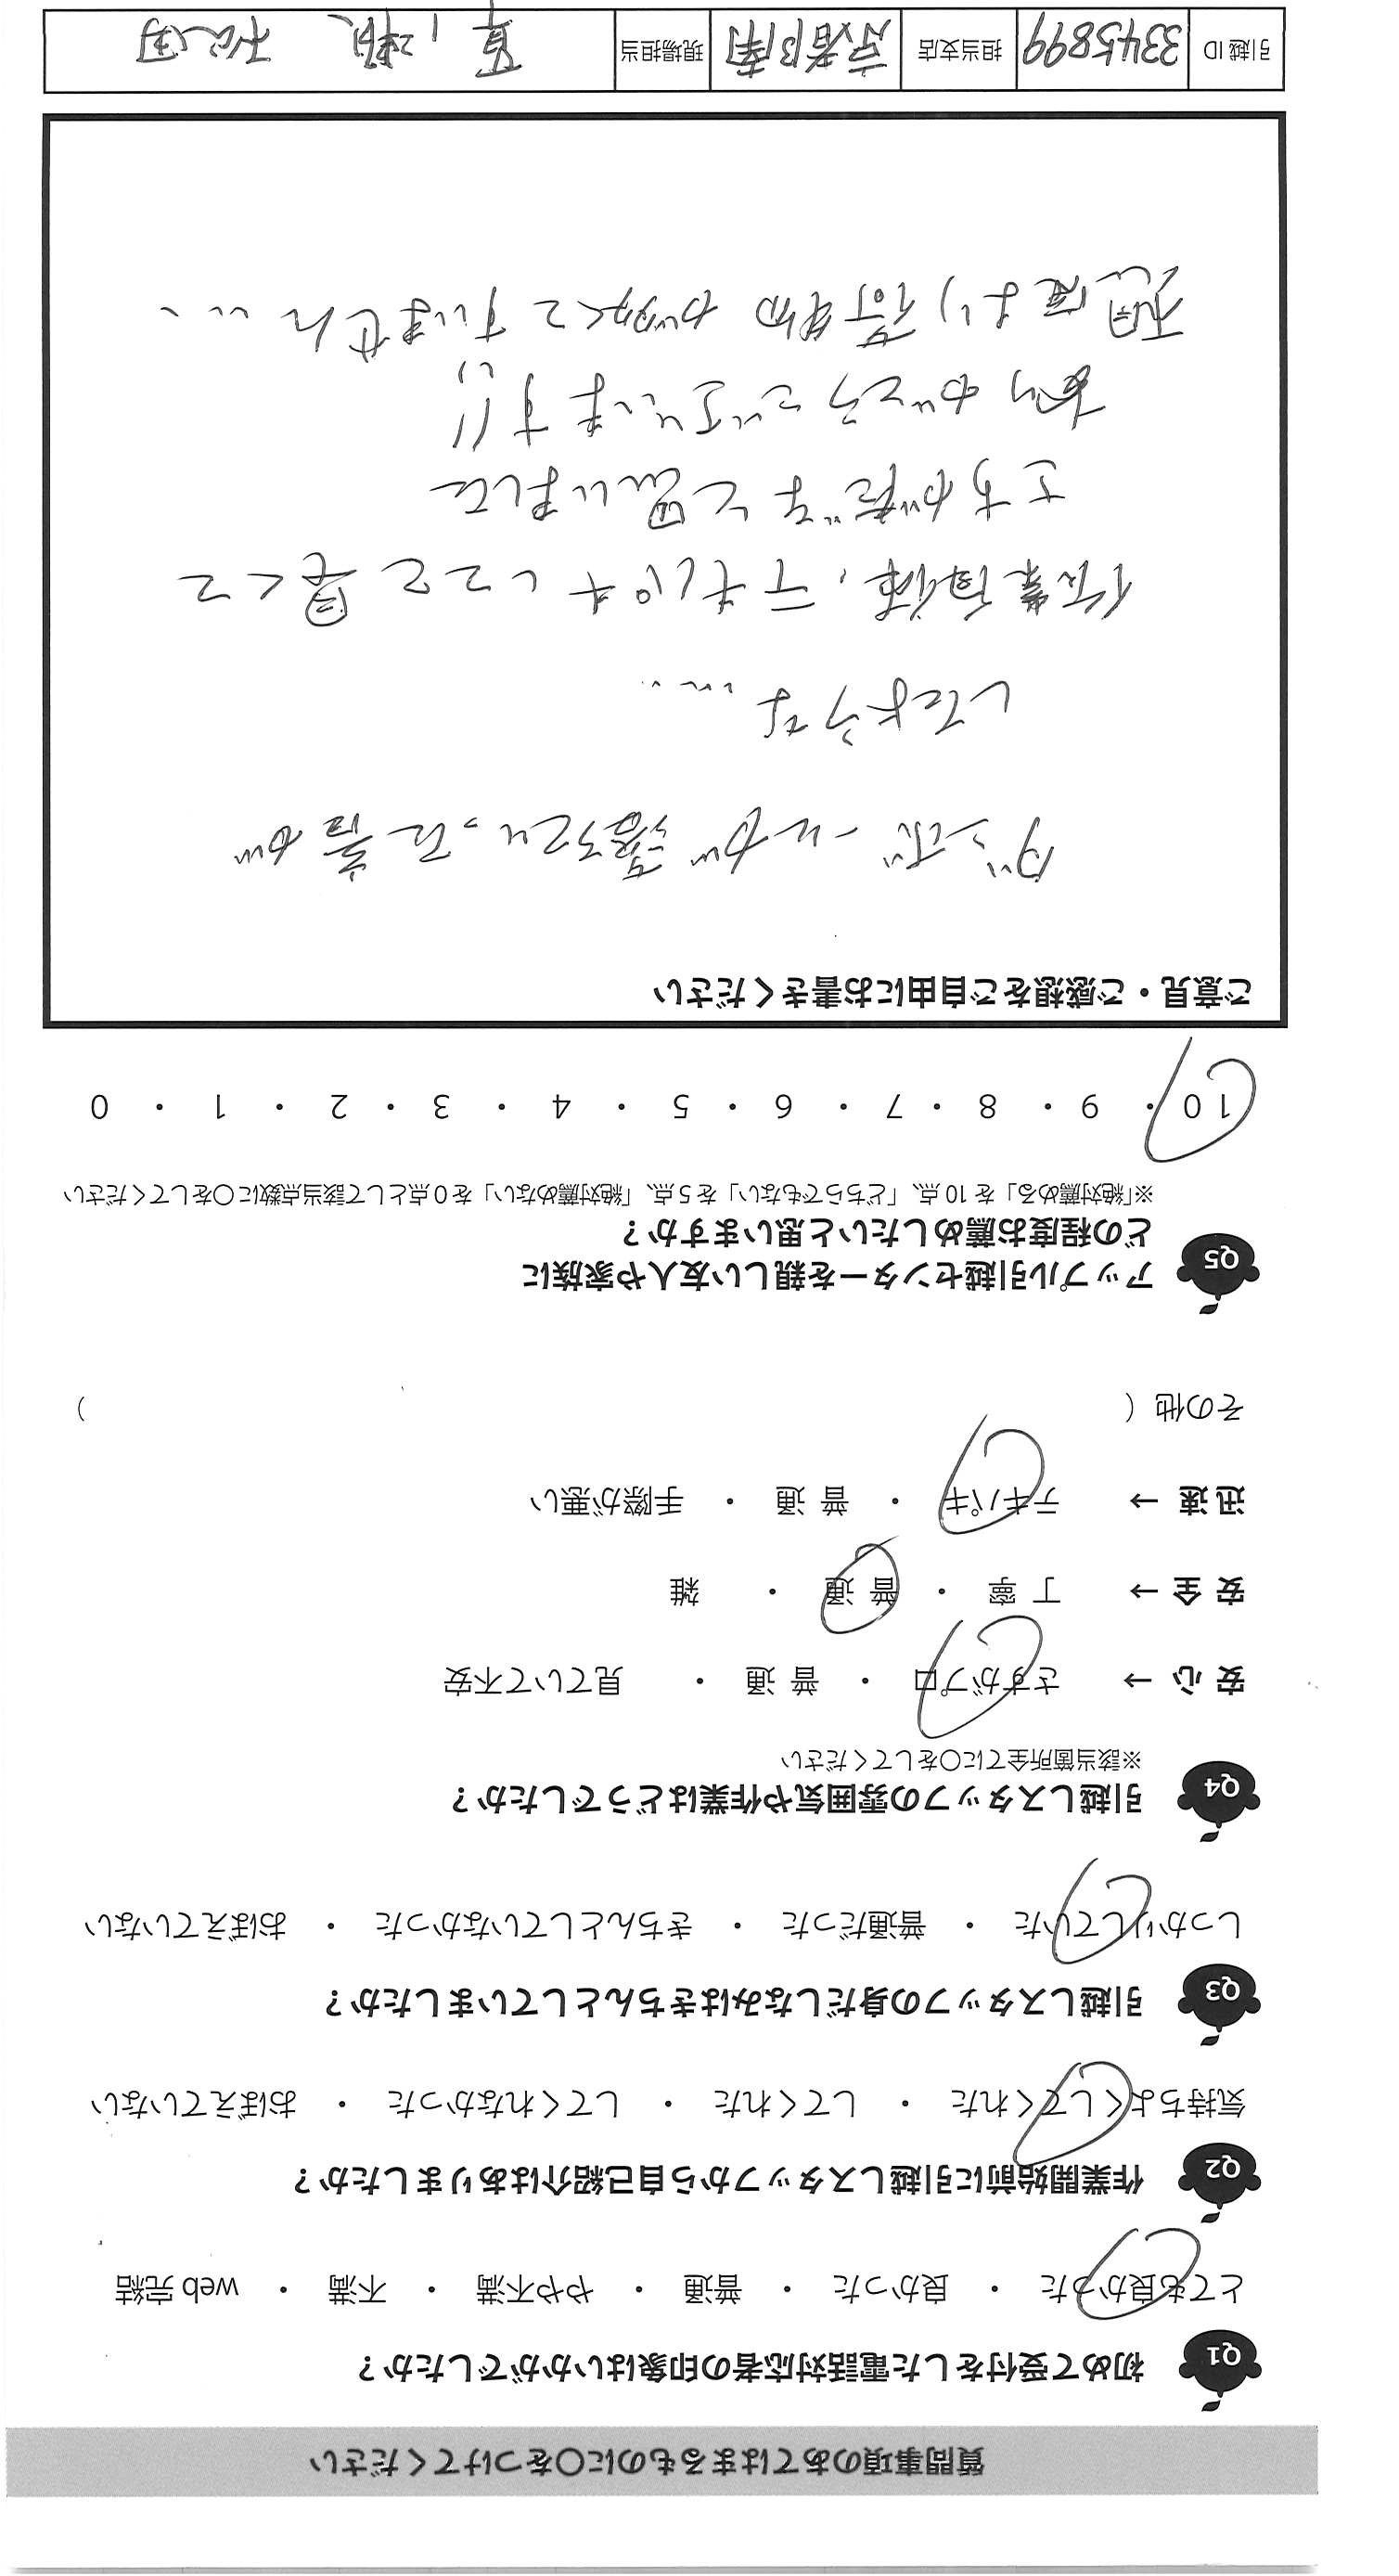 質問事項のあてはまるものに〇をつけてください
Q1 初めて受付をした電話対応者の印象はいかがでしたか?
とても良かった ・ 良かった ・ 普通 ・ やや不満 ・ 不満 ・ web 完結
Q2 作業開始前に引越しスタッフから自己紹介はありましたか?
気持ちよくしてくれた ・ してくれた ・ してくれなかった ・ おぼえていない
Q3 引越しスタッフの身だしなみはきちんとしていましたか?
しっかりしていた ・ 普通だった ・ きちんとしていなかった ・ おぼえていない
Q4 引越しスタッフの雰囲気や作業はどうでしたか?
※該当箇所全てに〇をしてください
安心 → さすがプロ ・ 普通 ・ 見ていて不安
安全 → 丁寧 ・ 普通 ・ 雑
迅速 → テキパキ ・ 普通 ・ 手際が悪い
その他 ( )
Q5 アップル引越センターを親しい友人や家族に
どの程度お薦めしたいと思いますか?
※「絶対薦める」を 10 点、「どちらでもない」を 5 点、「絶対薦めない」を 0 点として該当点数に〇をしてください
10 ・ 9 ・ 8 ・ 7 ・ 6 ・ 5 ・ 4 ・ 3 ・ 2 ・ 1 ・ 0
ご意見・ご感想をご自由にお書きください
ダンボールが落ちていった音が
したような....
作業自体、テキパキしてて早くて
さすがだなと思いました
有りがとうございます!!
想定より荷物が多くてすいません...、
引越 ID 3345899 担当支店 京都南 現場担当 草瀬、松田